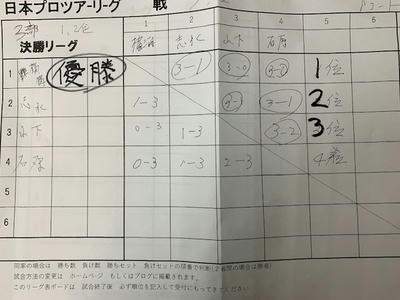 日本プロツアーリーグ 戦
2部 1,2位
決勝リーグ
1 2 3 4 5 6
志水 山下 石原
1 優勝 3-1 3-0 3-0 1位
2 志水 1-3 3-1 3-1 2位
3 山下 0-3 1-3 3-2 3位
4 石原 0-3 1-3 2-3 4位
5
6
同率の場合は 勝ち数 負け数 勝ちセット 負けセットの順番で判断(2者間の場合は勝者)
試合方法の変更は ホームページ もしくはブログに掲載します。
このリーグ表ボードは 試合終了後 必ず順位を記入して受付にもってきてください。